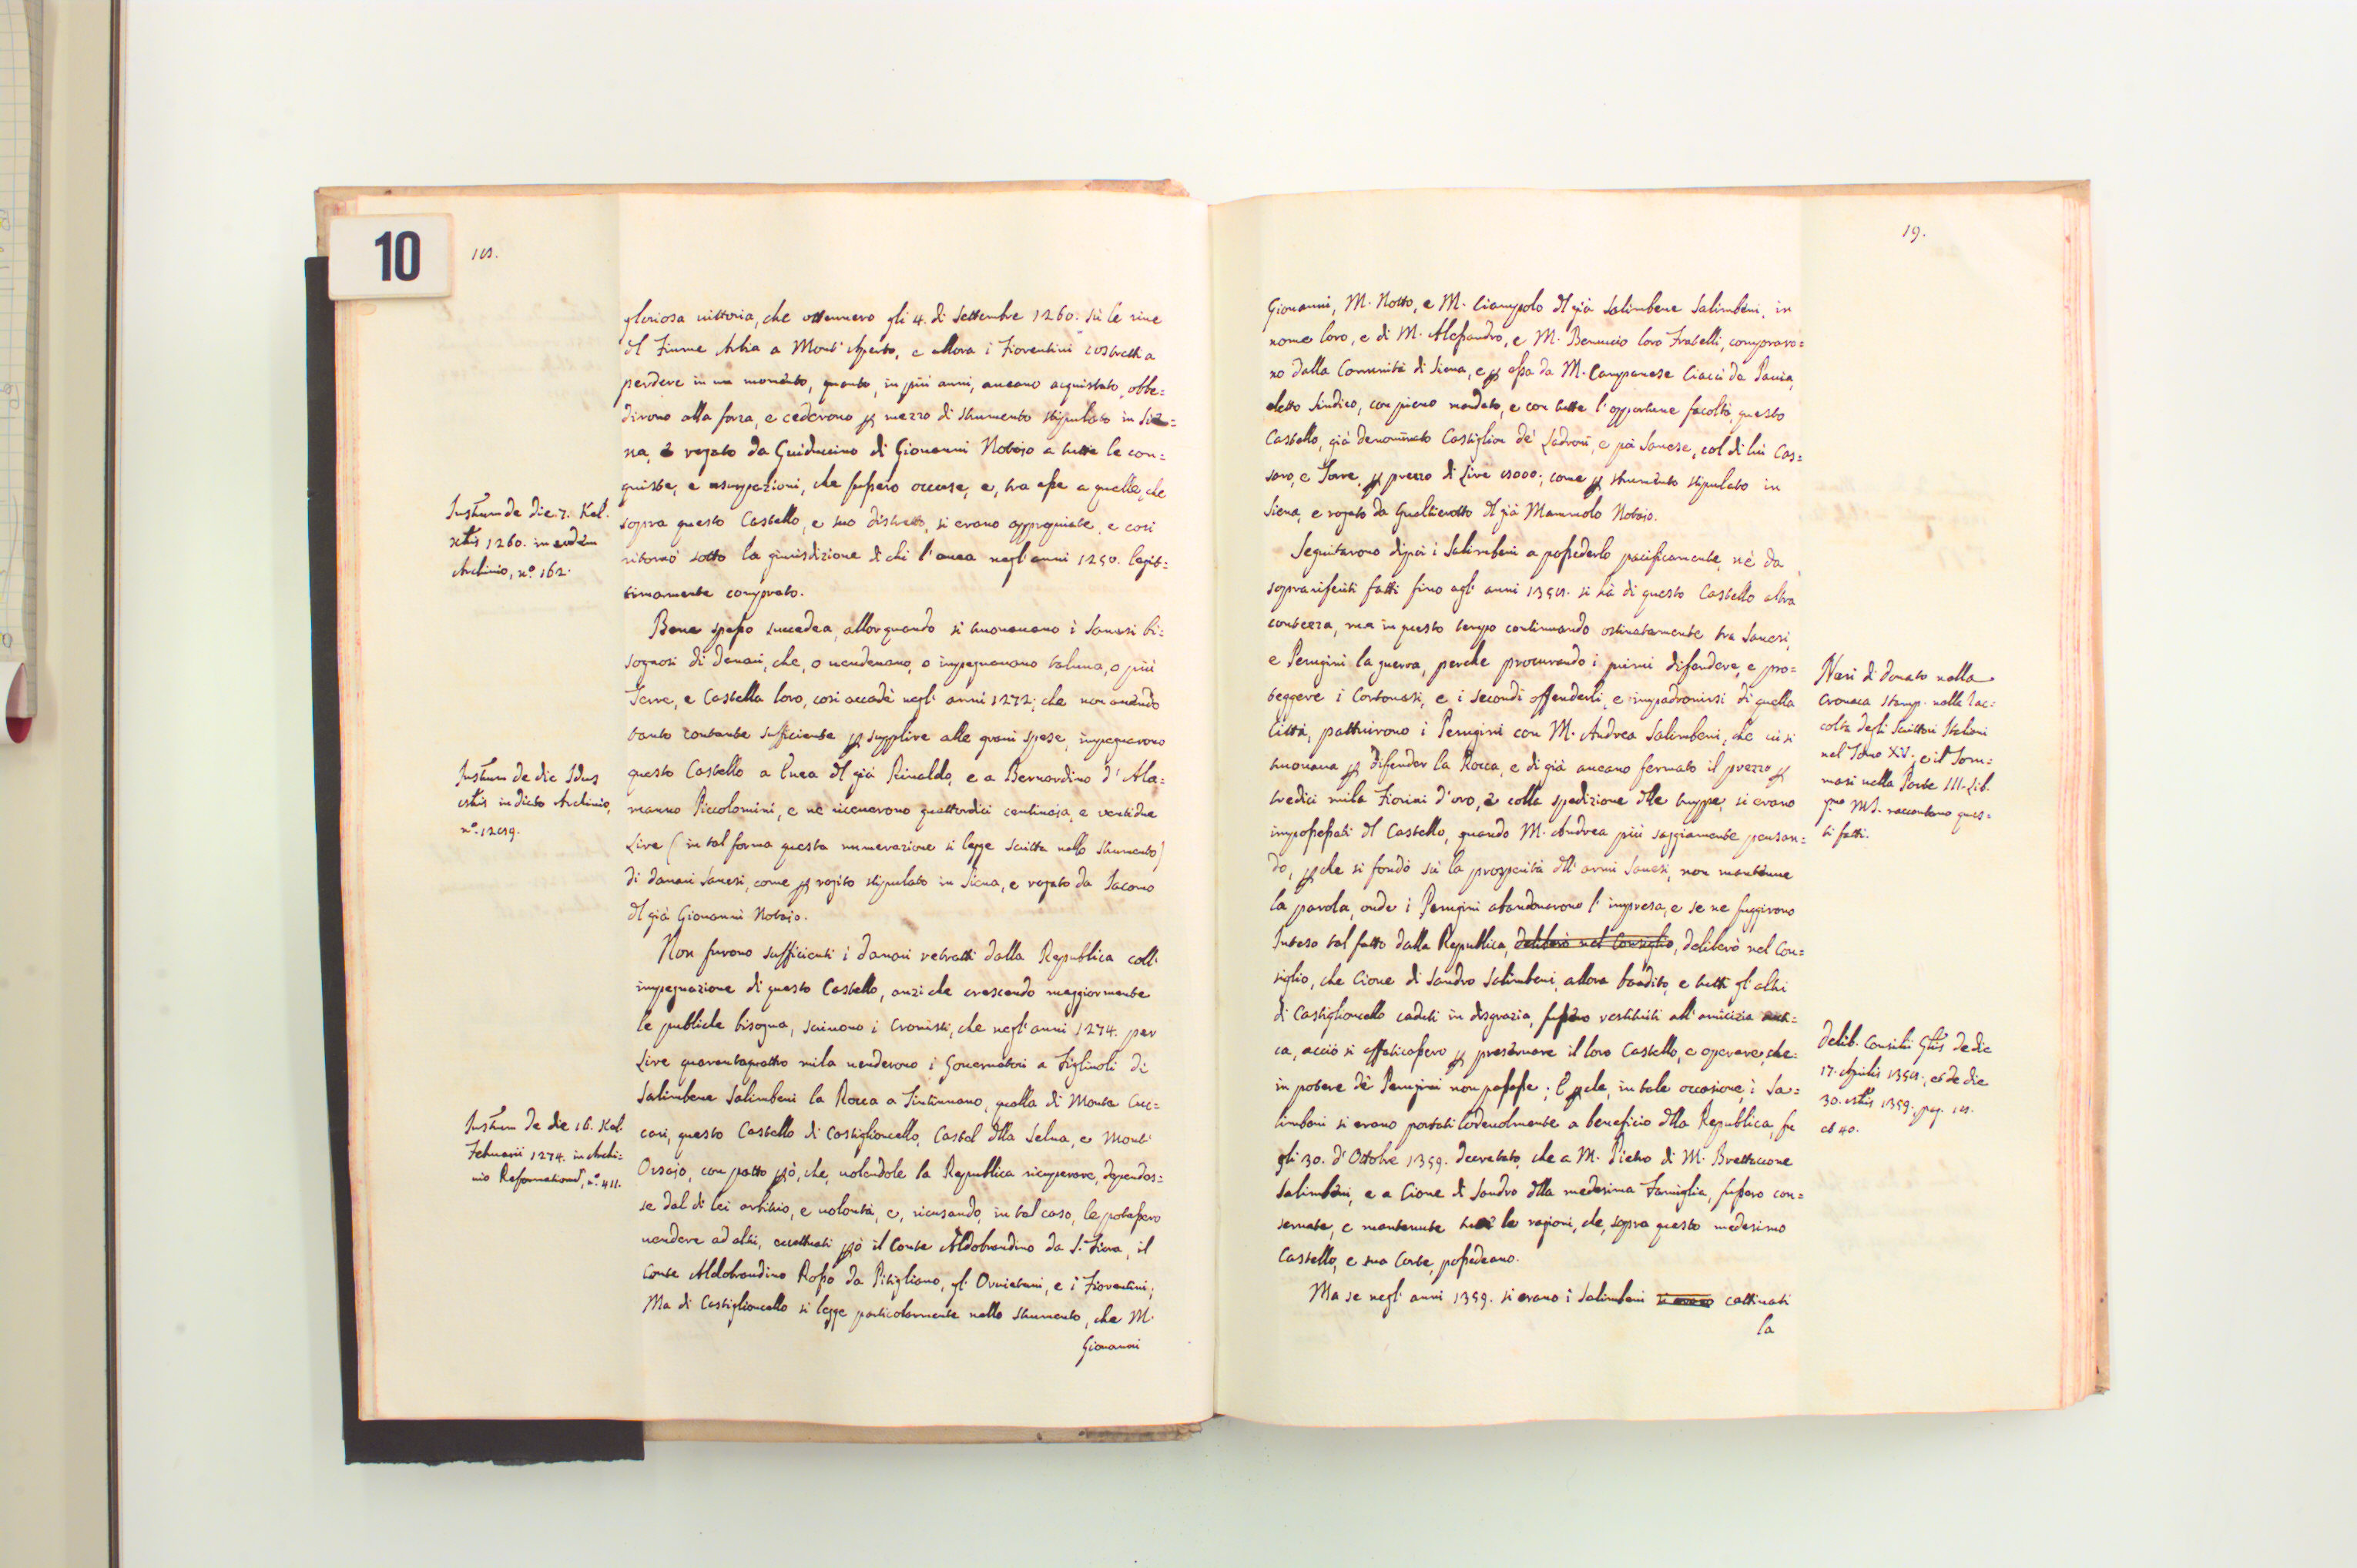 10
18.
gloriosa vittoria, che ottennero gli 4. di Settembre 1260. sù le rive
dl Fiume Arbia a Mont' Aperto, e allora i Fiorentini costretti a
perdere in un momento, quanto, in più anni, aueano acquistato, obbe=
dirono alla forza, e cederono p mezzo di strumento stipulato in Sie=
na, e rogato da Guiduccino di Giouanni Notaio a tutte le con=
quiste, e usurpazioni, che fussero occorse, e, tra esse a quelle, che
sopra questo Castello, e suo distretto, si erano appropriate, e così
ritornò sotto la giurisdizione di chi l'auea negl'anni 1250. legit=
timamente comprato.
Instum de die 7. Kal.
xbris 1260. in eodem
Archiuio, nº. 162.
Bene spesso succedea, allorquando si trouauano i Sanesi bi=
sognosi di denari, che, o uendeuano, o impegnauano taluna, o più
Terre, e Castella loro, così accadè negl'anni 1272; che non auendo
tanto contante sufficiente p supplire alle graui spese, impegnarono
questo Castello a Luca dl già Rinaldo, e a Bernardino d'Ala=
manno Piccolomini, e ne riceuerono quattordici centinaja, e ventidue
Lire (in tal forma questa numerazione si legge scritta nello strumento)
di danari Sanesi, come p rogito stipulato in Siena, e rogato da Iacomo
dl già Giouanni Notaio.
Instum de die Idus
in dicto Archiuio,
nº. 1289.
Non furono sufficienti i danari retratti dalla Republica coll'
impegnazione di questo Castello, anzi che crescendo maggiormente
le publiche bisogna, scriuono i Cronisti, che negl'anni 1274. per
Lire quarantaquattro mila uenderono i Gouernatori a Figliuoli di
Salimbene Salimbeni la Rocca a Tintinnano, quella di Monte Cuc=
cari, questo Castello di Castiglioncello, Castel dlla Selua, e Monti
Orsajo, con patto pò, che, uolendole la Republica ricuperare, dependes=
se dal di lei arbitrio, e uolontà, e, ricusando, in tal caso, le potessero
uendere ad altri, eccettuati pò il Conte Aldobrandino da S. Fiora, il
Conte Aldobrandino Rosso da Pitigliano, gl'Oruietani, e i Fiorentini;
Ma di Castiglioncello si legge particolarmente nello strumento, che M.
Giouanni
Instum de die 16. Kal
Februarii 1274. in Archi=
uio Reformationũ, nº. 411.
19.
Giouanni, M. Notto, e M. Ciampolo dl già Salimbene Salimbeni, in
nome loro, e di M. Alessandro, e M. Benuccio loro Fratelli, compraro=
no dalla Comunità di Siena, e p essa da M. Campanese Ciacci da Pauia,
eletto Sindico, con pieno mandato, e con tutte l'opportune facoltà, questo
Castello, già denominato Castiglion de' Ladroni, e poi Sanese, col di lui Cas=
saro, e Torre, p prezzo di Lire 8000; come p strumento stipulato in
Siena, e rogato da Gualtierotto dl già Notaio.
Seguitarono dipoi i Salimbeni a possederlo pacificamente, nè da
sopra riferiti fatti fino agl'anni 1358. si hà di questo Castello altra
contezza, ma in questo tempo continuando ostinatamente tra Sanesi,
e Perugini la guerra, perche procurando i primi difendere, e pro=
teggere i Cortonesi, e i secondi offenderli, e impadronirsi di quella
Città, pattuirono i Perugini con M. Andrea Salimbeni, che iui si
trouaua p difender la Rocca, e di già aueano fermato il prezzo p
tredici mila Fiorini d'oro, e colla spedizione dlle truppe, si erano
impossessati dl Castello, quando M. Andrea più saggiamente pensan=
do, pche si fondò sù la prosperità dll'armi Sanesi, non mantenne
la parola, onde i Perugini abandonarono l'impresa, e se ne fuggirono
Inteso tal fatto dalla Republica, deliberò nel Consiglio, deliberò nel Con=
siglio, che Cione di Sandro Salimbeni, allora bandito, e tutti gl'altri
di Castiglioncello caduti in disgrazia, fussero restituiti all'amicizia anti=
ca, acciò si affaticassero p preseruare il loro Castello, e operare, che
in potere de' Perugini non passasse; E pche, in tale occasione, i Sa=
limbeni si erano portati lodeuolmente a beneficio dlla Republica, fu
gli 30. d'Ottobre 1359. decretato, che a M. Pietro di M. Brettacone
Salimbeni, e a Cione di Sandro dlla medesima Famiglia, fussero con=
seruate, e mantenute tutte le ragioni, che, sopra questo medesimo
Castello, e sua Corte, possedeano.
Ma se negl'anni 1359. si erano i Salimbeni si erano cattiuati
la
Neri di Donato nella
Cronaca stamp. nella Rac=
colta degli Scrittori Italiani
nel Tomo XV; e il Tom=
masi nella Parte III. Lib.
pmo MS. raccontano ques=
ti fatti.
Delib. Consilii Gtis de die
17. Aprilis 1358., et de die
30. 8bris 1359. pag. 18.
et 40.